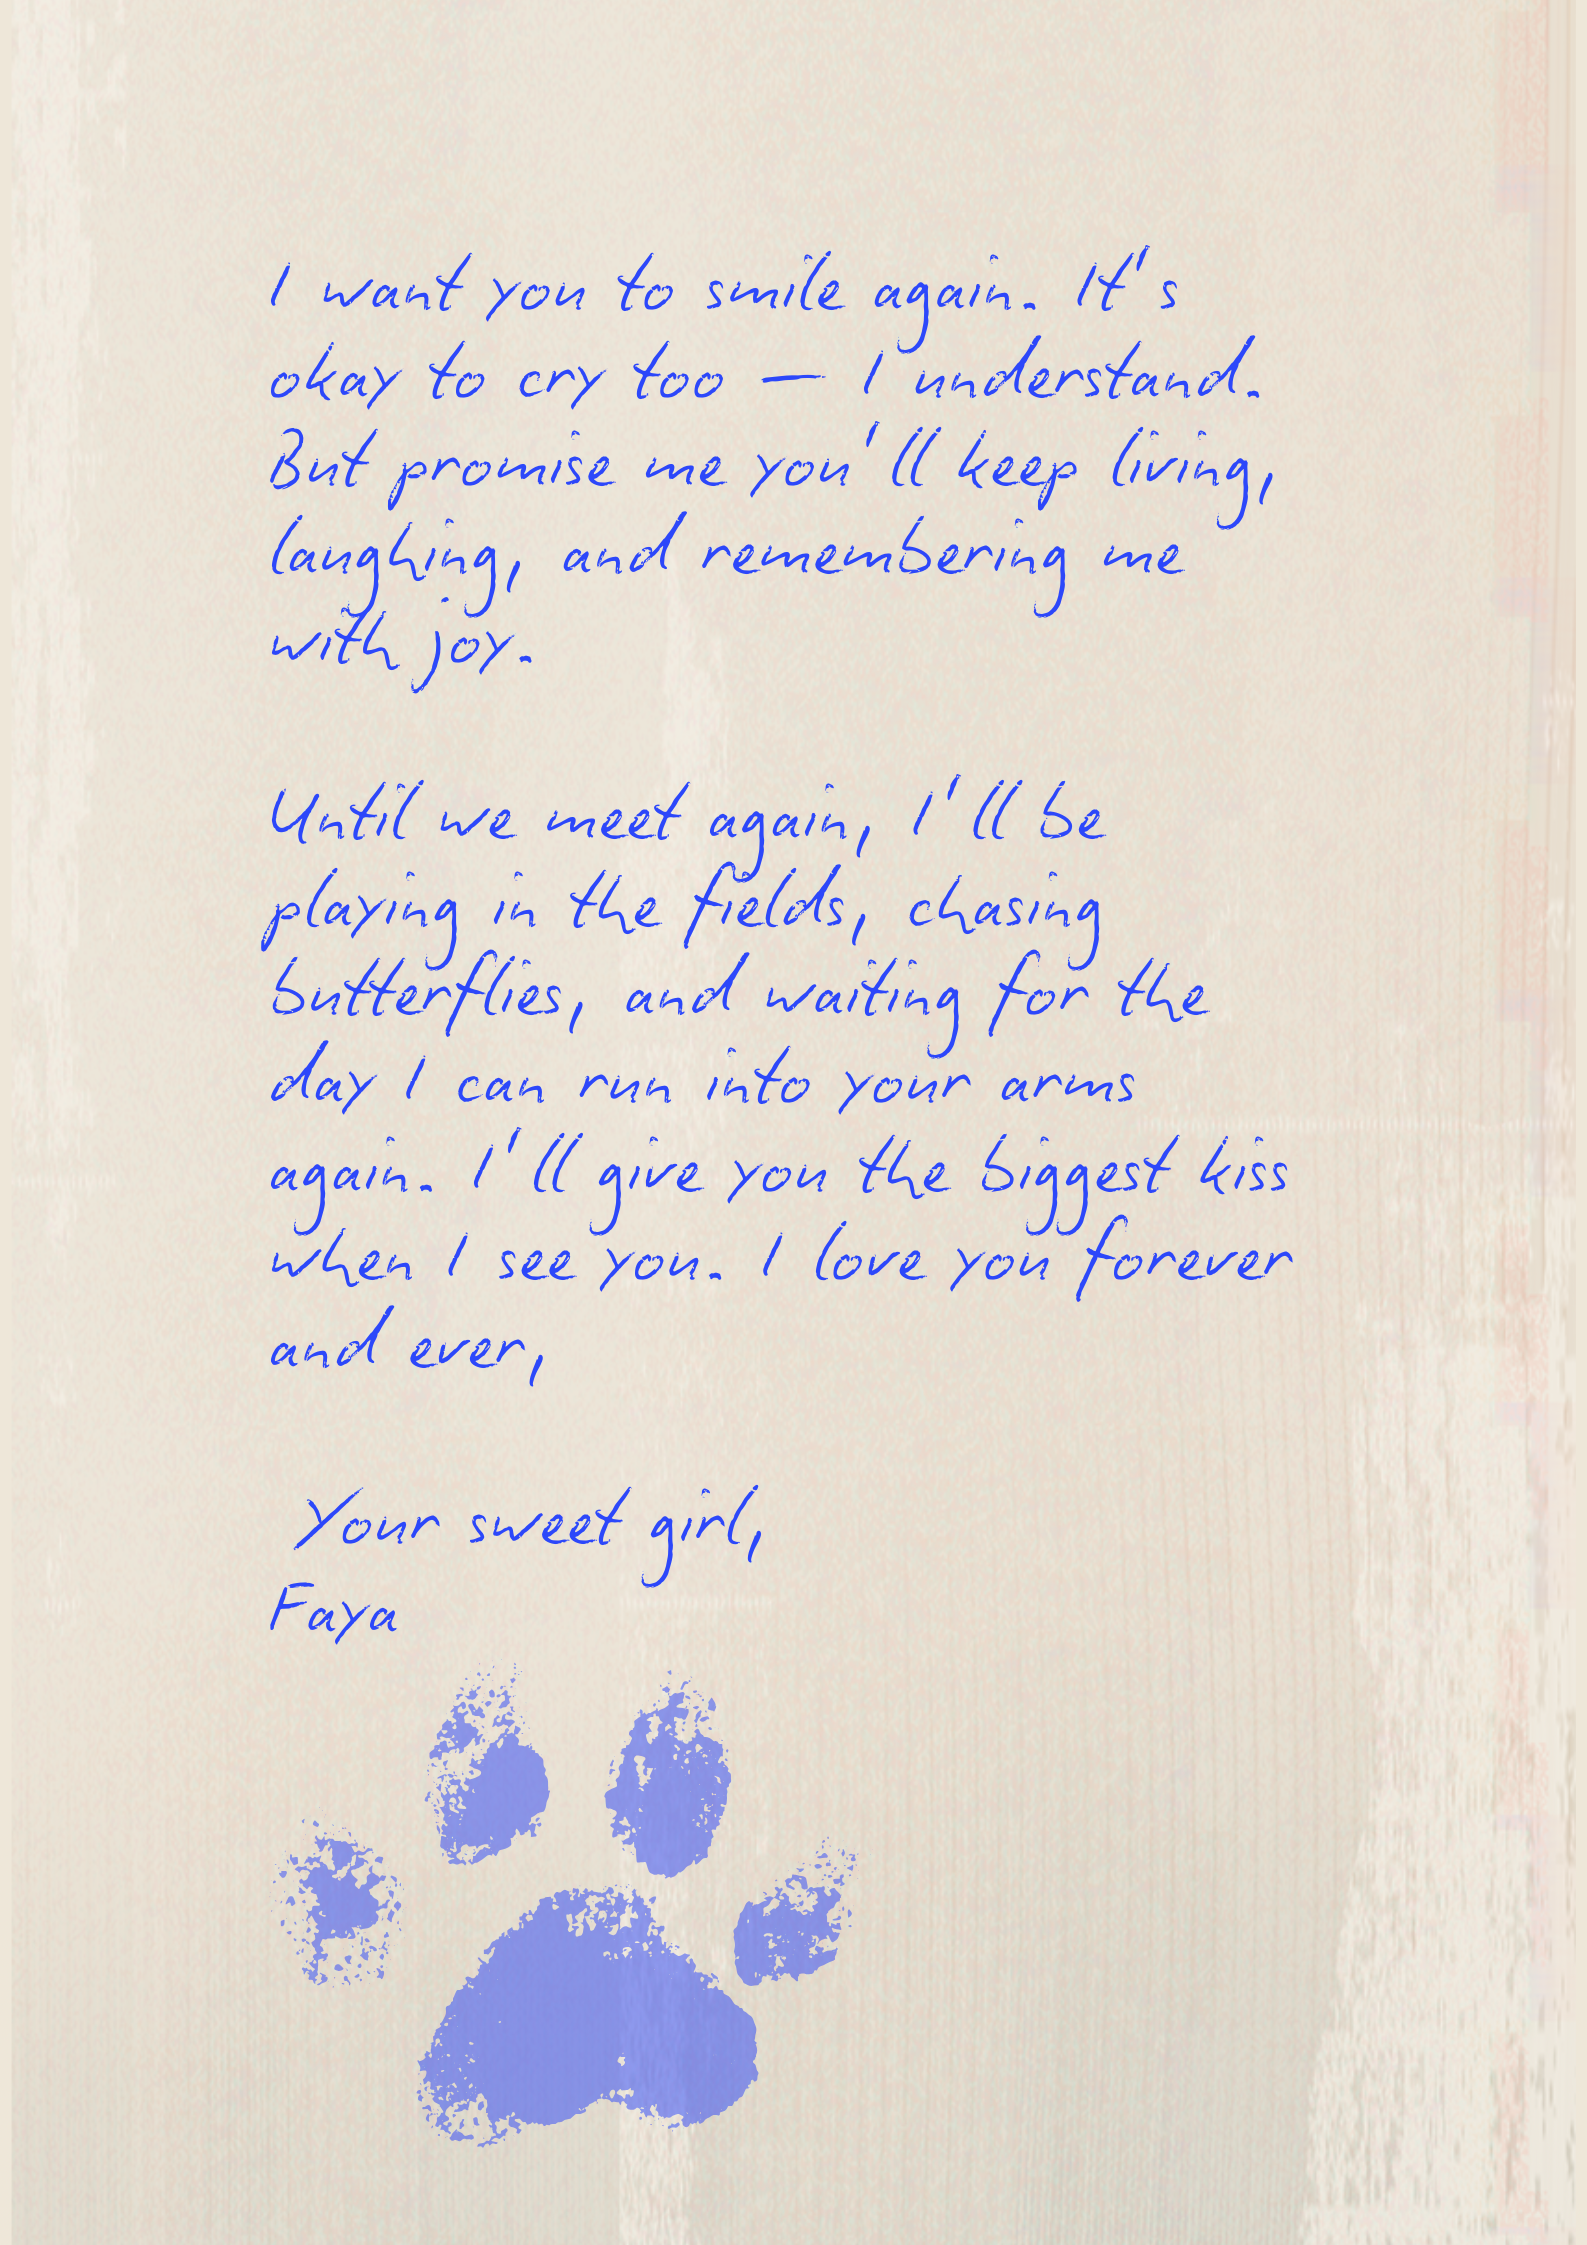 I want you to smile again. It's
okay to cry too — I understand.
But promise me you'll keep living,
laughing, and remembering me
with joy.
Until we meet again, I'll be
playing in the fields, chasing
butterflies, and waiting for the
day I can run into your arms
again. I'll give you the biggest kiss
when I see you. I love you forever
and ever,
Your sweet girl,
Faya